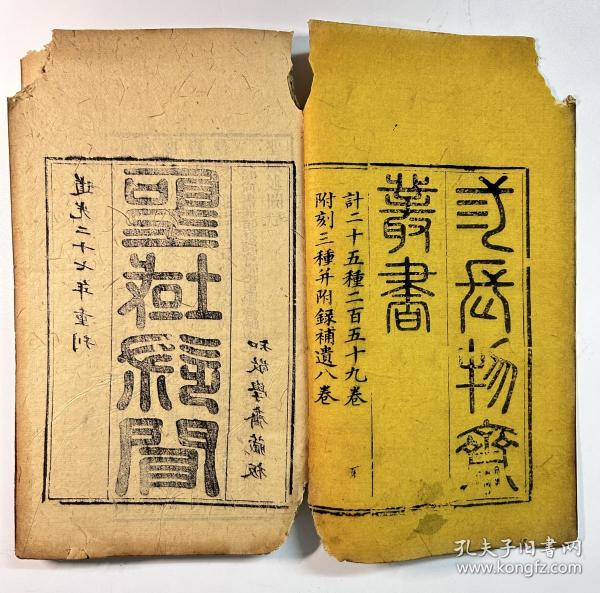 弎長物齋
叢書
計二十五種二百五十九卷
附刻三種并附録補遺八卷
道光二十七年重刊
聖域述聞
知敬學齋藏板
孔夫子旧书网
www.kongfz.com